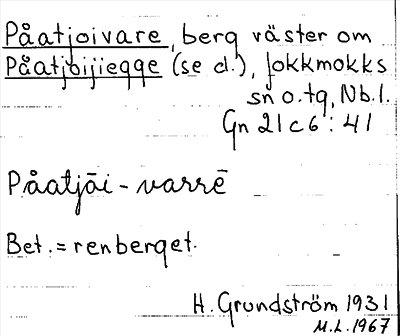 Påatjoivare, berg väster om
Påatjoijiegge (se d.), Jokkmokks
sn o. tg, Nb. l.
Gn 21c6 : 41
Påatjāi - varrē
Bet. = renberget.
H. Grundström 1931
M.L. 1967